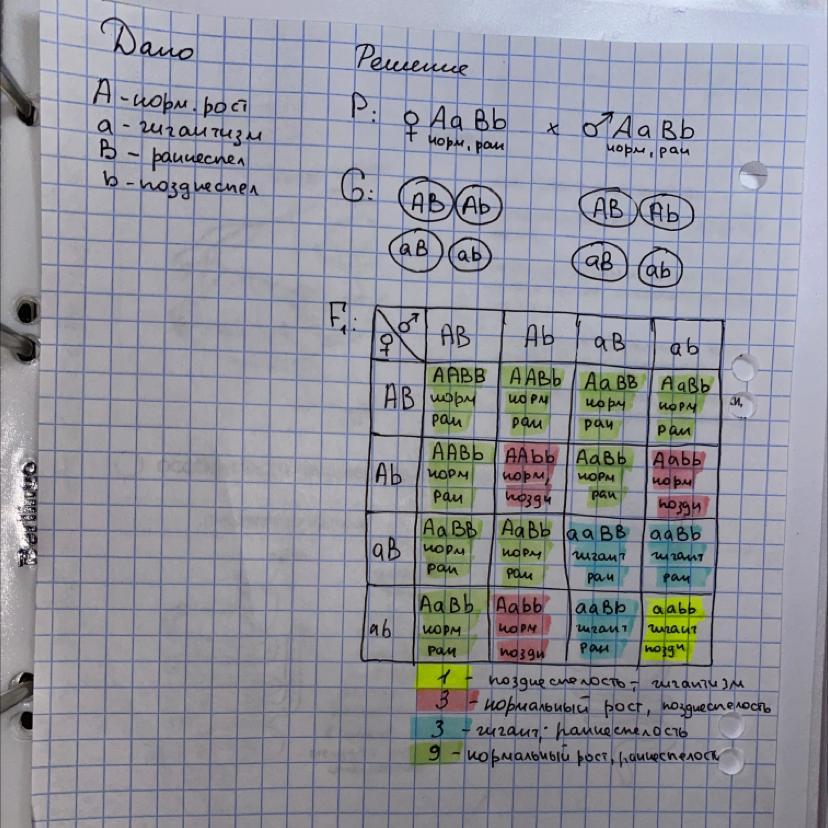 Дано
Решение
А - норм. рост
а - гигантизм
В - раннеспел
b - позднеспел
P: ♀ AaBb x ♂ AaBb
норм, ран норм, ран
G: AB Ab AB Ab
aB ab aB ab
F₁: ♀ ♂ AB Ab aB ab
AB AABB AABb AaBB AaBb
норм норм норм норм
ран ран ран ран
Ab AABb AAbb AaBb Aabb
норм норм, норм норм
ран поздн ран поздн
aB AaBB AaBb aaBB aaBb
норм норм гигант гигант
ран ран ран ран
ab AaBb Aabb aaBb aabb
норм норм гигант гигант
ран поздн ран поздн
1 - позднеспелость, гигантизм
3 - нормальный рост, позднеспелость
3 - гигант, раннеспелость
9 - нормальный рост, раннеспелость